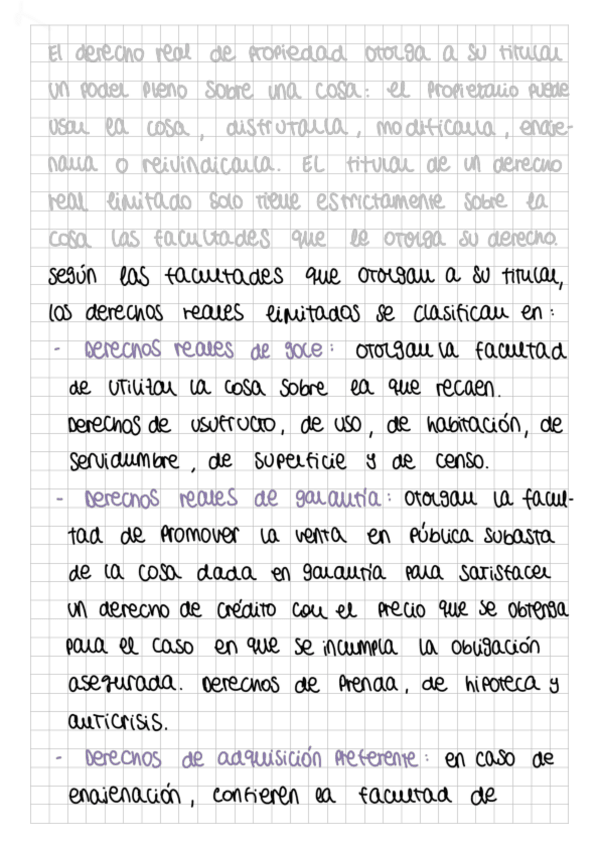 El derecho real de propiedad otorga a su titular
un poder pleno sobre una cosa: el propietario puede
usar la cosa, disfrutarla, modificarla, enaje-
narla o reivindicarla. El titular de un derecho
real limitado solo tiene estrictamente sobre la
cosa las facultades que le otorga su derecho.
según las facultades que otorgan a su titular,
los derechos reales limitados se clasifican en:
- Derechos reales de goce: otorgan la facultad
de utilizar la cosa sobre la que recaen.
Derechos de usufructo, de uso, de habitación, de
servidumbre, de superficie y de censo.
- Derechos reales de garantía: otorgan la facul-
tad de promover la venta en pública subasta
de la cosa dada en garantía para satisfacer
un derecho de crédito con el precio que se obtenga
para el caso en que se incumpla la obligación
asegurada. Derechos de prenda, de hipoteca y
anticrisis.
- Derechos de adquisición preferente: en caso de
enajenación, confieren la facultad de